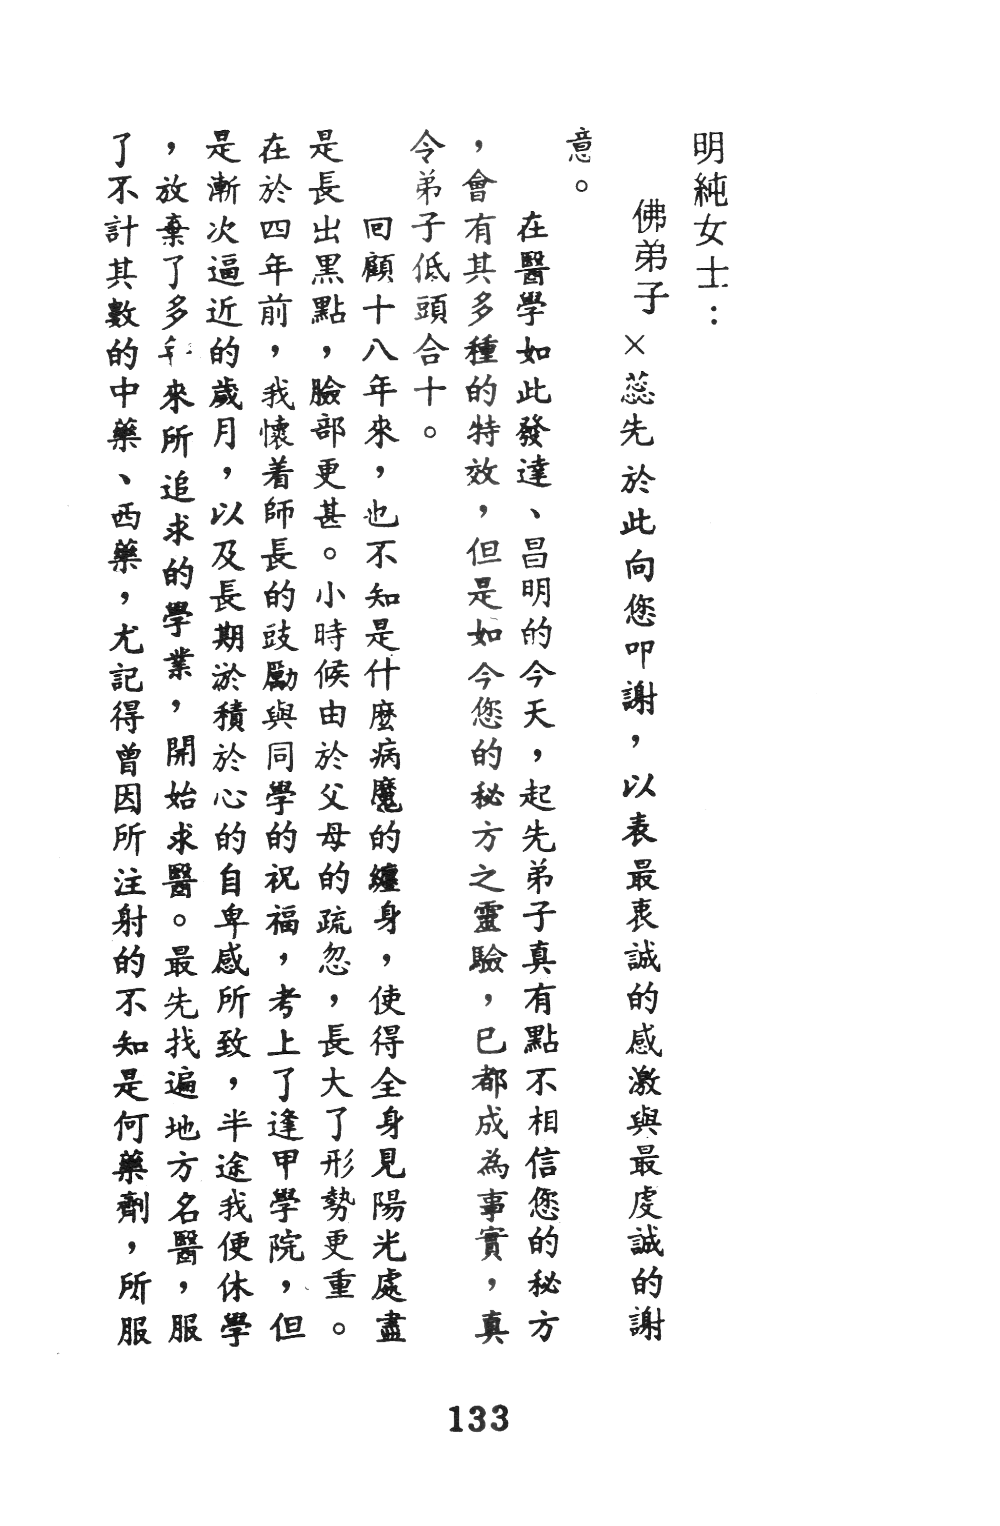 明純女士：
佛弟子×蕊先於此向您叩謝，以表最衷誠的感激與最虔誠的謝
意。
在醫學如此發達、昌明的今天，起先弟子真有點不相信您的秘方
，會有其多種的特效，但是如今您的秘方之靈驗，已都成為事實，真
令弟子低頭合十。
回顧十八年來，也不知是什麼病魔的纏身，使得全身見陽光處盡
是長出黑點，臉部更甚。小時候由於父母的疏忽，長大了形勢更重。
在於四年前，我懷着師長的鼓勵與同學的祝福，考上了逢甲學院，但
是漸次逼近的歲月，以及長期淤積於心的自卑感所致，半途我便休學
，放棄了多年來所追求的學業，開始求醫。最先找遍地方名醫，服
了不計其數的中藥、西藥，尤記得曾因所注射的不知是何藥劑，所服
133